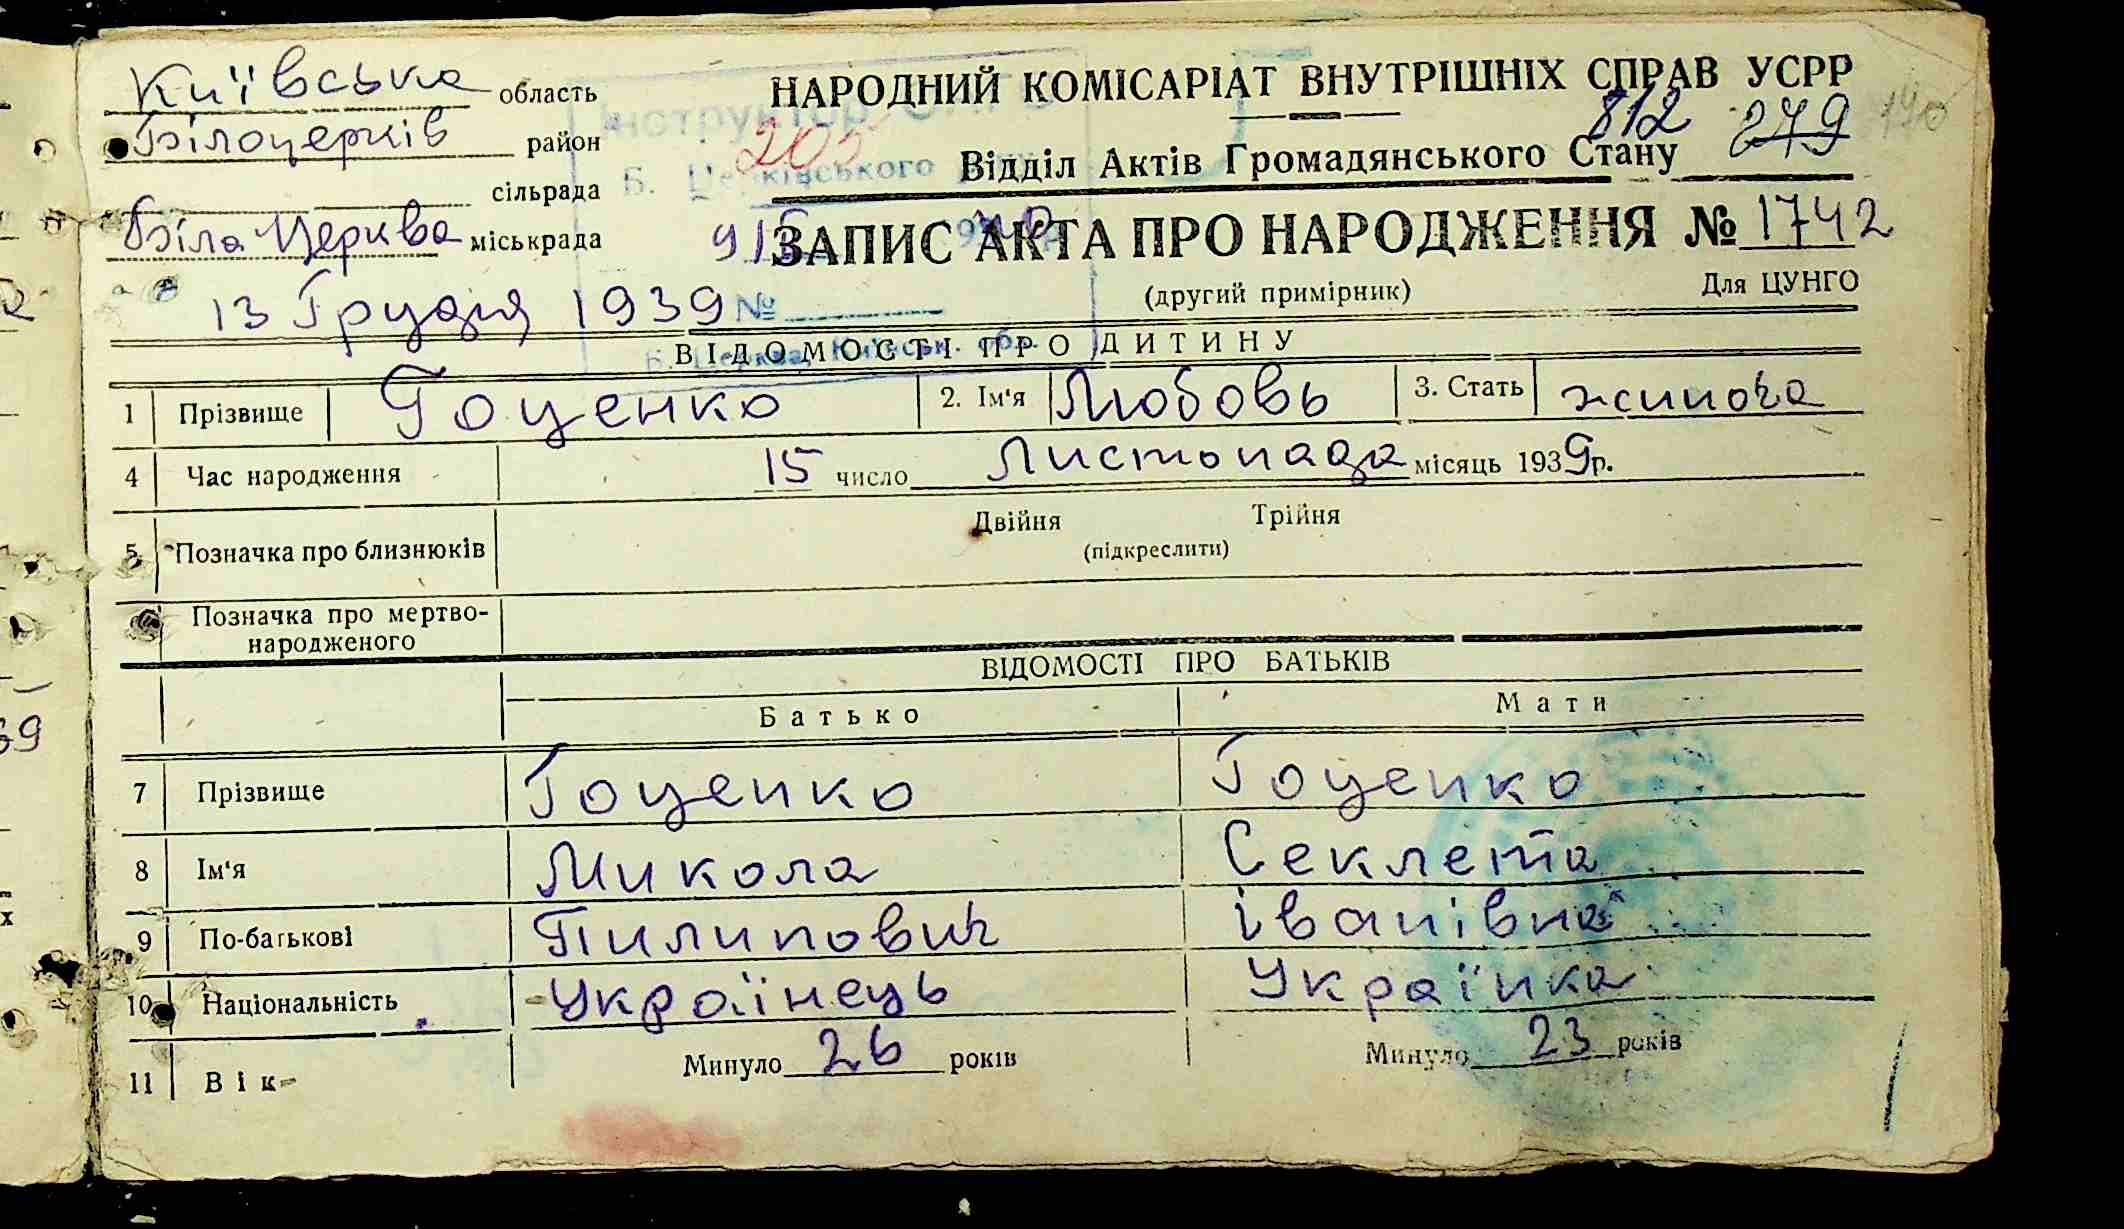 Київська область
Білоцерків район
сільрада
Біла Церква міськрада
13 Грудня 1939
НАРОДНИЙ КОМІСАРІАТ ВНУТРІШНІХ СПРАВ УСРР
812 279 140
205
Відділ Актів Громадянського Стану
Інструктор
Б. Церківського
ЗАПИС АКТА ПРО НАРОДЖЕННЯ № 1742
(другий примірник) Для ЦУНГО
№
ВІДОМОСТІ ПРО ДИТИНУ
1 Прізвище Гоценко 2. Ім'я Любовь 3. Стать жиноча
4 Час народження 15 число Листопада місяць 1939р.
Двійня Трійня
5 Позначка про близнюків (підкреслити)
Позначка про мертво-
народженого
ВІДОМОСТІ ПРО БАТЬКІВ
Батько Мати
7 Прізвище Гоценко Гоценко
8 Ім'я Микола Секлета
9 По-батькові Пилипович Іванівна
10 Національність Українець Українка
11 Вік Минуло 26 років Минуло 23 років